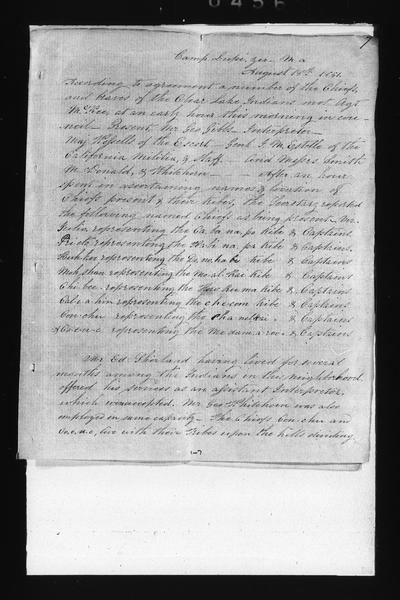 0456
7
Camp Lupi, yu. M. a
August 18th 1851.
According to agreement a number of the Chiefs,
and Braves of the Clear Lake Indians met Agt
McKee, at an early hour this morning in coun-
cil — Present, Mr Geo Gibbs Interpreter —
Maj Wessells of the Escort — Genl J. M. Estelle of the
California Militia, & Staff. and Messrs Smith
McDonald, & Whitchorn — After an hour
spent in ascertaining names & location of
Chiefs present & their tribes, the Secretary reported
the following named Chiefs as being present. viz.
Julio, representing the Ca ba na po tribe & Captains.
Prieto representing the Ha bi na po tribe & Captains.
representing the Da no ha bo tribe & Captains
representing the Mo al Kai tribe & Captains
Chi bee. representing the How Ku ma tribe & Captains.
Cal i a him representing the che com tribe & Captains
Con chu representing the Cha net Kai. & Captains
& Co en e. representing the Me dam a rec. & Captains
Mr Ed. Shirland having lived for several
months among the Indians in this neighborhood
offered his services as an assistant Interpreter,
which was accepted. Mr Geo Whitchorn was also
employed in same capacity — The Chiefs, Con chu an
live with their Tribes upon the hills dividing